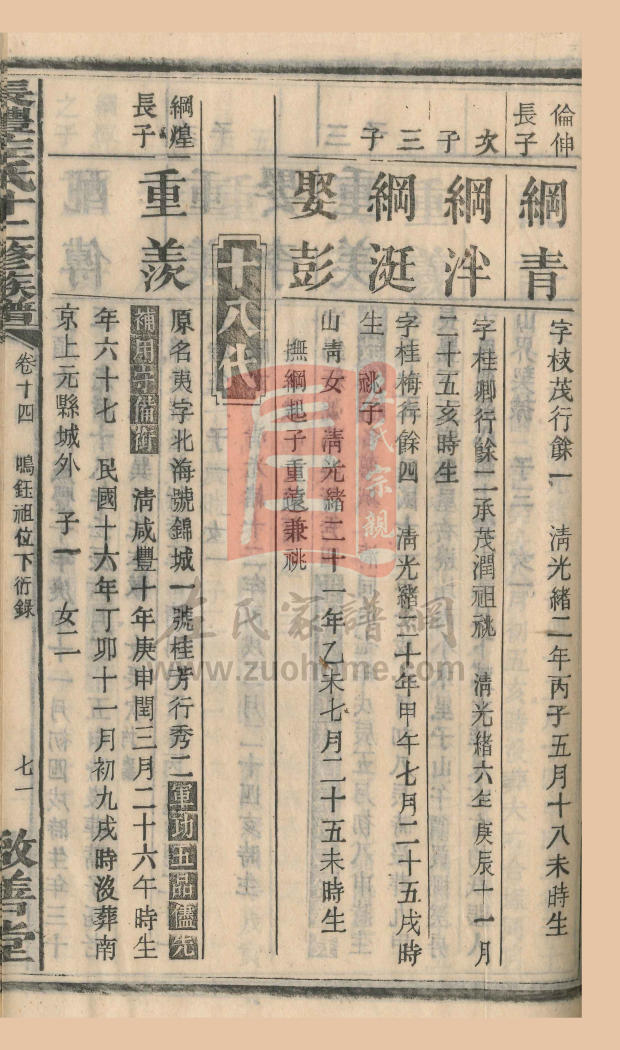 倫伸
長子
綱青
字枝茂行餘一　清光緒二年丙子五月十八未時生
次子
綱泮
字桂卿行餘二承茂潤祖祧　清光緒六年庚辰十一月
二十五亥時生
三子
綱涏
字桂梅行餘四　清光緒二十年甲午七月二十五戌時
生　祧子
娶彭
山青女　清光緒二十一年乙未七月二十五未時生
撫綱起子重遠兼祧
十八代
綱煌
長子
重羨
原名夷字北海號錦城一號桂芳行秀二軍功五品儘先
補用守備銜　清咸豐十年庚申閏三月二十六午時生
年六十七　民國十六年丁卯十一月初九戌時沒葬南
京上元縣城外　子一　女二
左氏十二修族譜
卷十四　鳴鈺祖位下衍錄
七一
啟善堂
氏宗親
左氏家譜網
www.zuohome.com